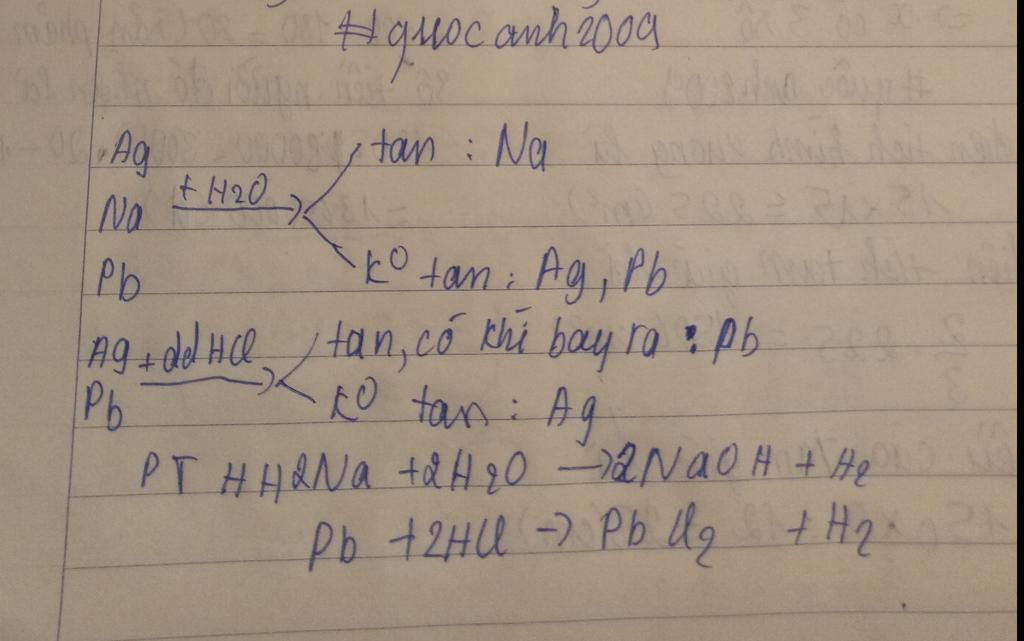 #quocanh2009
Ag tan : Na
Na + H2O →
Pb k° tan : Ag, Pb
Ag + dd HCl → tan, có khí bay ra : Pb
Pb k° tan : Ag
PT HH 2Na + 2H2O → 2NaOH + H2
Pb + 2HCl → PbCl2 + H2